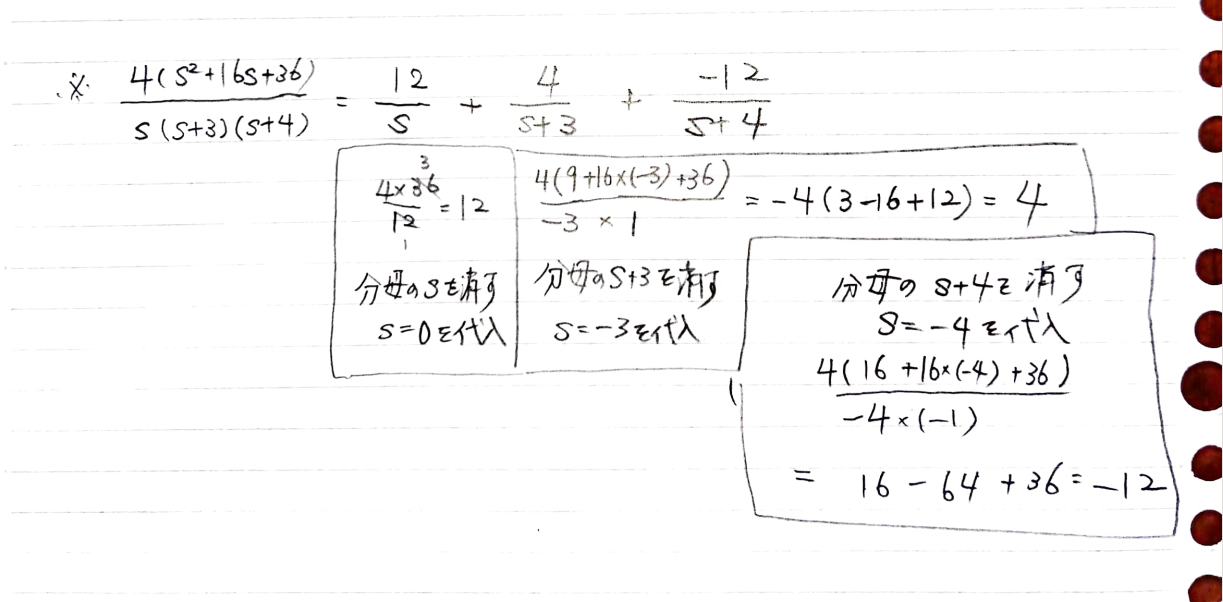 ※ 4(s²+16s+36) / s(s+3)(s+4) = 12/s + 4/(s+3) + -12/(s+4)
4×36/12 = 12
3
1
分母のsを消す
s=0を代入
4(9+16×(-3)+36) / -3×1 = -4(3-16+12) = 4
分母のs+3を消す
s=-3を代入
分母の s+4を消す
s=-4を代入
4(16+16×(-4)+36) / -4×(-1)
= 16-64+36=-12